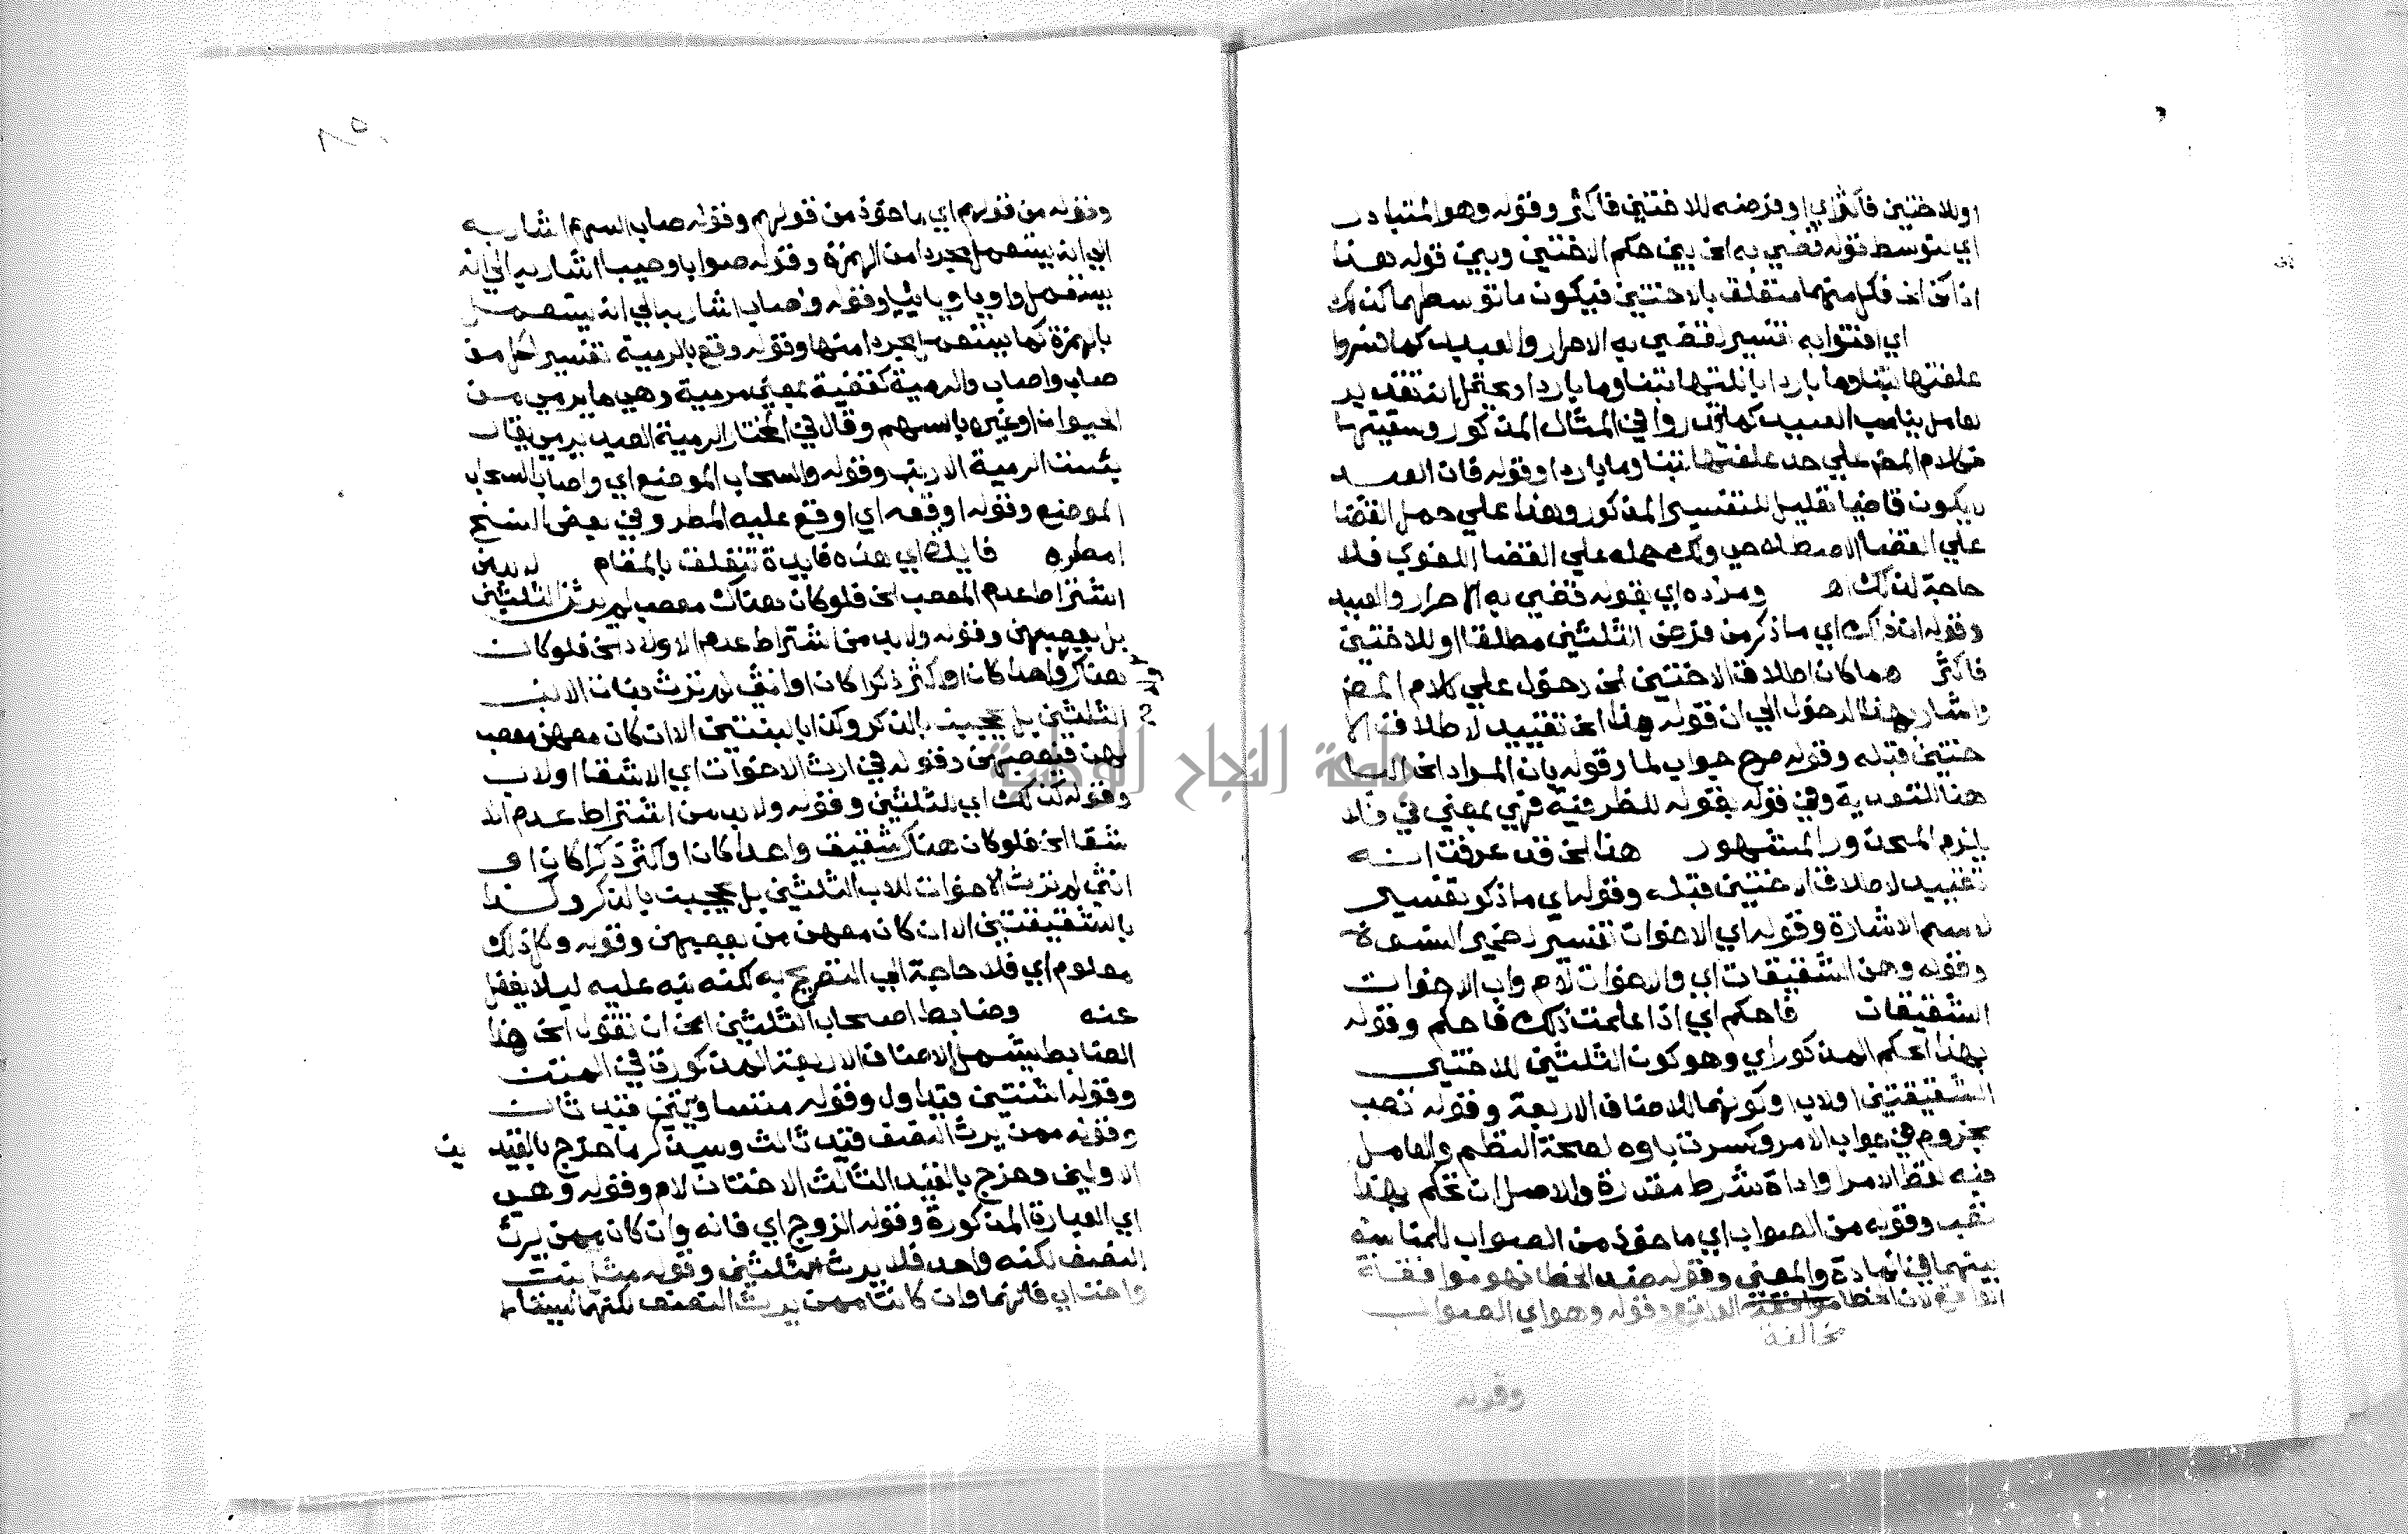 او للاختين فاكثر اي او فرضه للاختين فاكثر وقوله وهو المتبادر
اي لتوسط قوله قضي به الخ بين حكم الاختين وبين قوله هذا
اذا كن الخ فكل منهما متعلق بالاختين فيكون ما توسطهما كذلك
اي افتوا به تفسير لقضي به الاحرار والعبيد كما فسروا
علفتها تبنا وما باردا بانلتها تبنا وما باردا ويحتمل انه تقدير
عامل يناسب العبيد كما قدروا في المثال المذكور وسقيتها
فكلام المص علي حد علفتها تبنا وما باردا وقوله فان العبد
لا يكون قاضيا تعليل للتفسير المذكور وهذا علي حمل القضا
علي القضا الاصطلاحي ولك حمله علي القضا اللغوي فلا
حاجة لذلك اه ومراده اي بقوله قضي به الاحرار والعبيد
وقوله ان ذلك اي ما ذكر من فرض الثلثين مطلقا او للاختين
فاكثر هما كان اطلاق الاختين الخ دخول علي كلام المص
واشار بهذا الدخول الي ان قوله هذا الخ تقييد لاطلاق الا
ختين قبله وقوله صرح جواب لما وقوله بان المراد الخ البا
هنا للتعدية وفي قوله بقوله للظرفية فهي بمعني في فلا
يلزم المحذور المشهور هذا الخ قد عرفت انه
تقييد لاطلاق الاختين قبله وقوله اي ما ذكر تفسير
لاسم الاشارة وقوله اي الاخوات تفسير لضمير النسوة
وقوله وهن الشقيقات اي والاخوات لام واب الاخوات
الشقيقات فاحكم اي اذا علمت ذلك فاحكم وقوله
بهذا الحكم المذكور اي وهو كون الثلثين للاختين
الشقيقتين او لاب او كونهما للاصناف الاربعة وقوله تصب
مجزوم في جواب الامر وكسرت باوه لصحة النظم والعامل
فيه لفظ الامر او اداة شرط مقدرة والاصل ان تحكم بهذا
تصب وقوله من الصواب اي ماخوذ من الصواب للمناسبة
بينهما في المادة والمعني وقوله ضد الخطا فهو موافقة
الواقع لان الخطا موافقة الواقع وقوله وهو اي الصواب
مخالفة
وقوله
٨٥
وقوله من قولهم اي ماخوذ من قولهم وقوله صاب السهم اشار به
الي انه يستعمل مجردا من الهمزة وقوله صوابا وصيبا اشار به الي انه
يستعمل واويا ويائيا وقوله واصاب اشار به الي انه يستعمل
بالهمزة كما يستعمل مجردا منها وقوله وقع بالرمية تفسير لكل من
صاب واصاب والرمية كقضية بمعني مرمية وهي ما يرمي من
الحيوان او غيره بالسهم وقال في المختار الرمية الصيد يرمي يقال
بئست الرمية الارنب وقوله والسحاب الموضع اي واصاب السحاب
الموضع وقوله اوقعه اي اوقع عليه المطر وفي بعض النسخ
امطره فايدة اي هذه فايدة تتعلق بالمقام لا بد من
اشتراط عدم المعصب الخ فلو كان هناك معصب لم يرثن الثلثين
بل يعصبهن وقوله ولا بد من اشتراط عدم الاولاد الخ فلو كان
هناك واحدا كان او اكثر ذكرا كان او انثي لم ترث بنات الابن
الثلثين بل حجبت بالذكر وكذا بالبنتين الا ان كان معهن معصب
لهن فيعصبهن وقوله في ارث الاخوات اي الاشقا او لاب
وقوله كذلك اي للثلثين وقوله ولا بد من اشتراط عدم الا
شقا الخ فلو كان هناك شقيق واحدا كان او اكثر ذكرا كان او
انثي لم ترث الاخوات للاب الثلثين بل حجبت بالذكر وكذا
بالشقيقتين الا ان كان معهن من يعصبهن وقوله وكل ذلك
معلوم اي فلا حاجة الي التصريح به لكنه نبه عليه ليلا يغفل
عنه وضابط اصحاب الثلثين الخ ان تقول الخ هذا
الضابط يشمل الاصناف الاربعة المذكورة في المتن
وقوله اثنتين قيد اول وقوله متساويتين قيد ثان
وقوله ممن يرث النصف قيد ثالث وسيذكر ما خرج بالقيد
ين
الاولين وخرج بالقيد الثالث الاختان لام وقوله وهي
اي العبارة المذكورة وقوله الزوج اي فانه وان كان ممن يرث
النصف لكنه واحد فلا يرث الثلثين وقوله مثل بنت
واخت اي فانهما وان كانتا ممن يرث النصف لكنهما ليستا